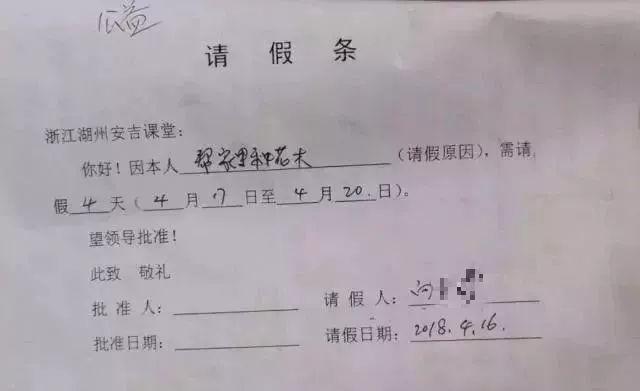 公益
请假条
浙江湖州安吉课堂:
你好!因本人帮家里种苗木(请假原因),需请
假4天(4月17日至4月20.日)。
望领导批准!
此致 敬礼
批准人: 请假人:向
批准日期: 请假日期:2018.4.16.